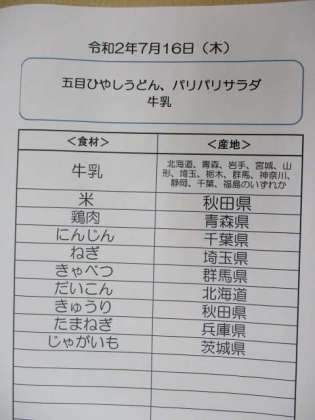 令和2年7月16日（木）
五目ひやしうどん、パリパリサラダ
牛乳
＜食材＞ ＜産地＞
牛乳 北海道、青森、岩手、宮城、山
形、埼玉、栃木、群馬、神奈川、
静岡、千葉、福島のいずれか
米 秋田県
鶏肉 青森県
にんじん 千葉県
ねぎ 埼玉県
きゃべつ 群馬県
だいこん 北海道
きゅうり 秋田県
たまねぎ 兵庫県
じゃがいも 茨城県